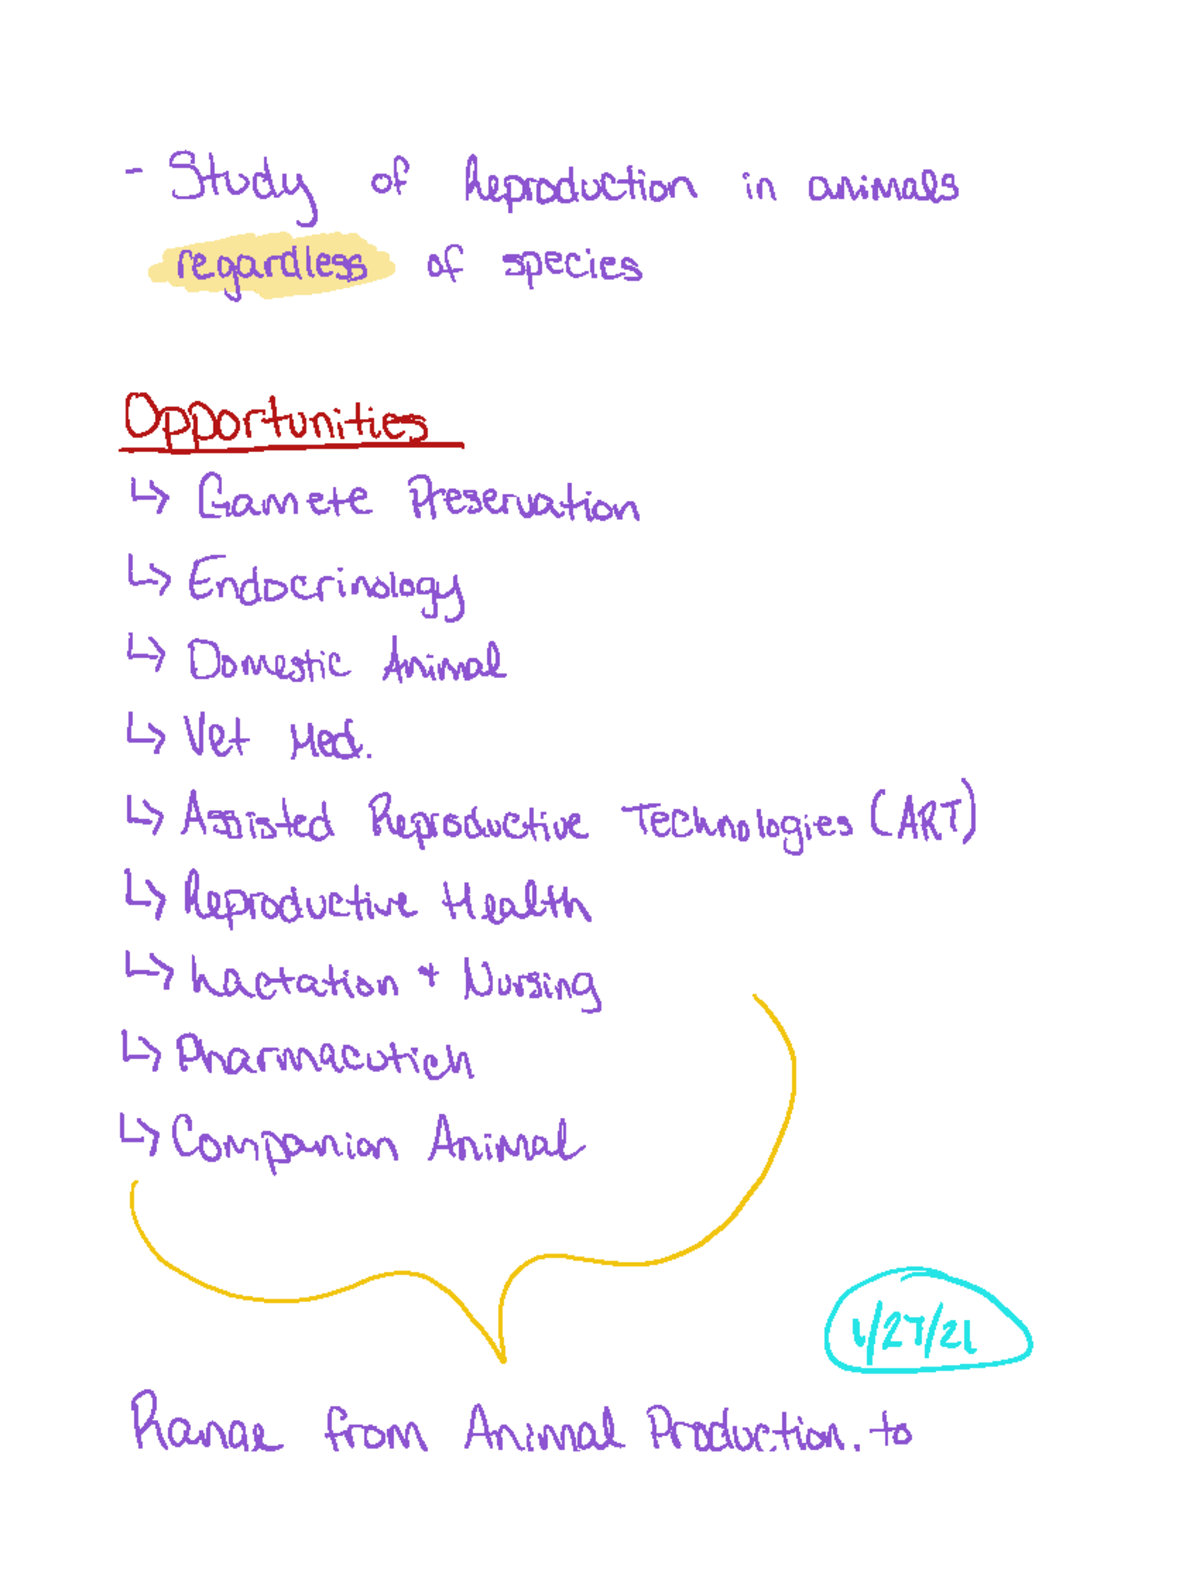 - Study of Reproduction in animals
regardless of species
Opportunities
↳ Gamete Preservation
↳ Endocrinology
↳ Domestic Animal
↳ Vet Med.
↳ Assisted Reproductive Technologies (ART)
↳ Reproductive Health
↳ Lactation + Nursing
↳ Pharmacutich
↳ Companion Animal
1/27/21
Range from Animal Production. to